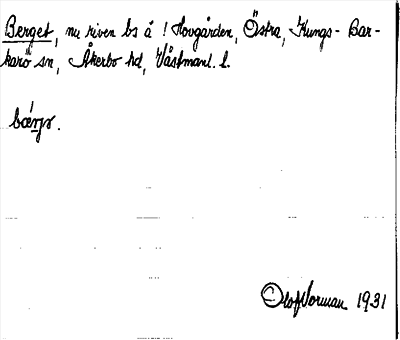 Berget, nu riven bs å! Hovgården, Östra, Kungs-Bar-
karö sn, Åkerbo hd, Västmanl. l.
bærjə.
Olof Norman 1931